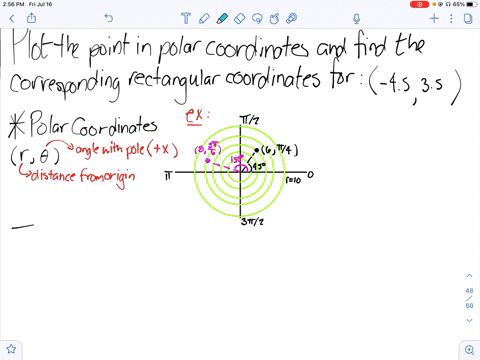 2:56 PM Fri Jul 16
65%
Plot the point in polar coordinates and find the
corresponding rectangular coordinates for: (-4.5, 3.5)
* Polar Coordinates
ex:
(r, θ)
angle with pole (+x)
distance from origin
π/2
(6, π/4)
150°
45°
π
0
r=10
3π/2
48
/
60